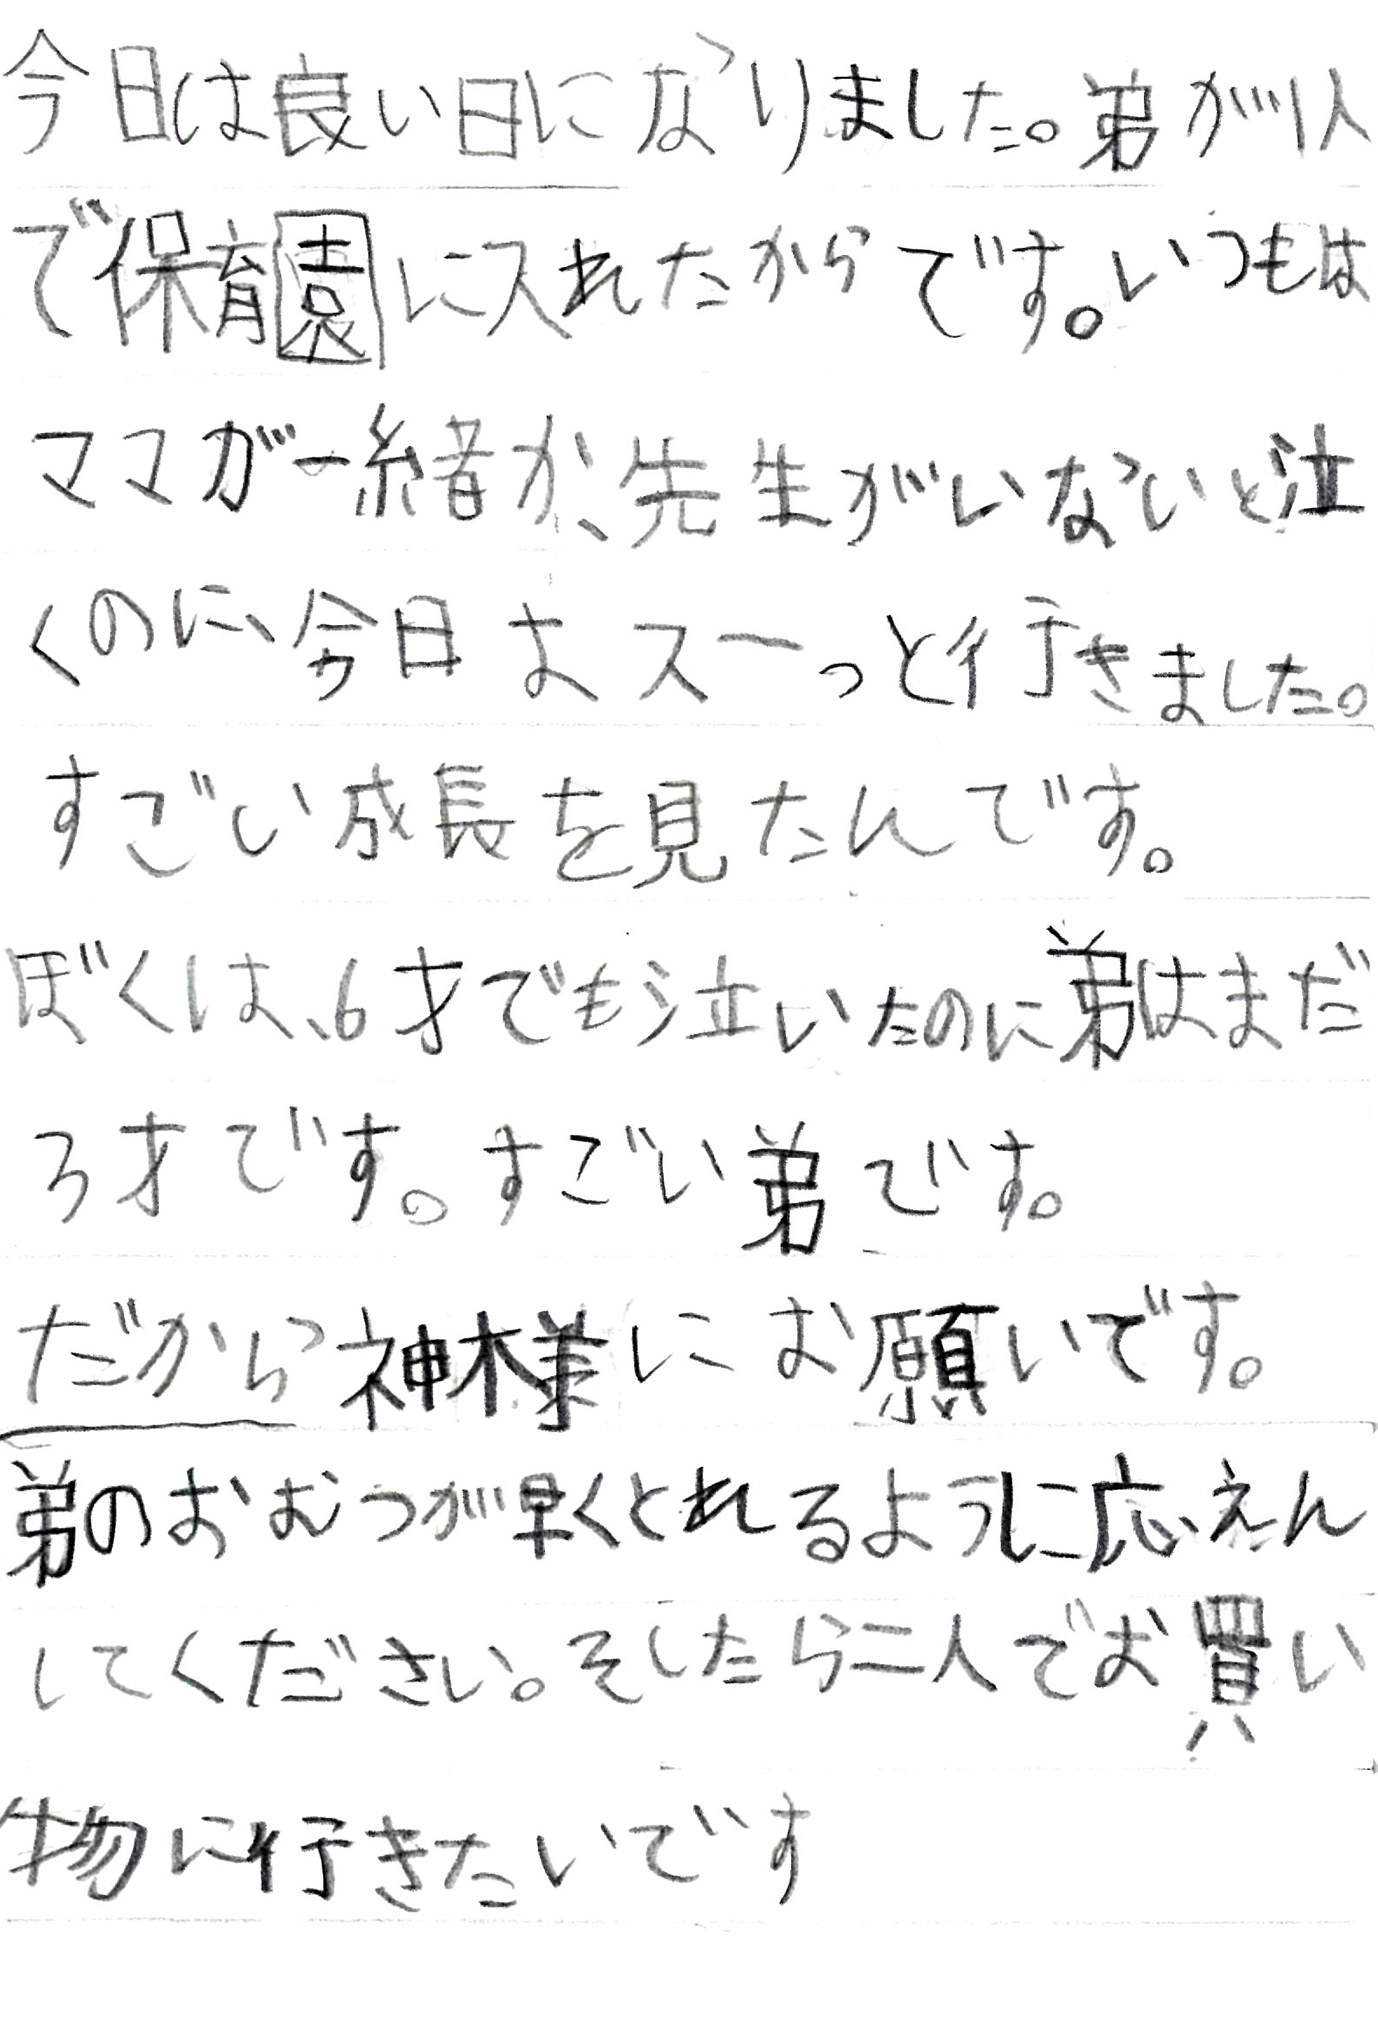 今日は良い日になりました。弟が1人
で保育園に入れたからです。いつもは
ママが一緒か、先生がいないと泣
くのに、今日はスーっと行きました。
すごい成長を見たんです。
ぼくは、6才でも泣いたのに弟はまだ
3才です。すごい弟です。
だから神様にお願いです。
弟のおむつが早くとれるように応えん
してください。そしたら二人でお買い
物に行きたいです